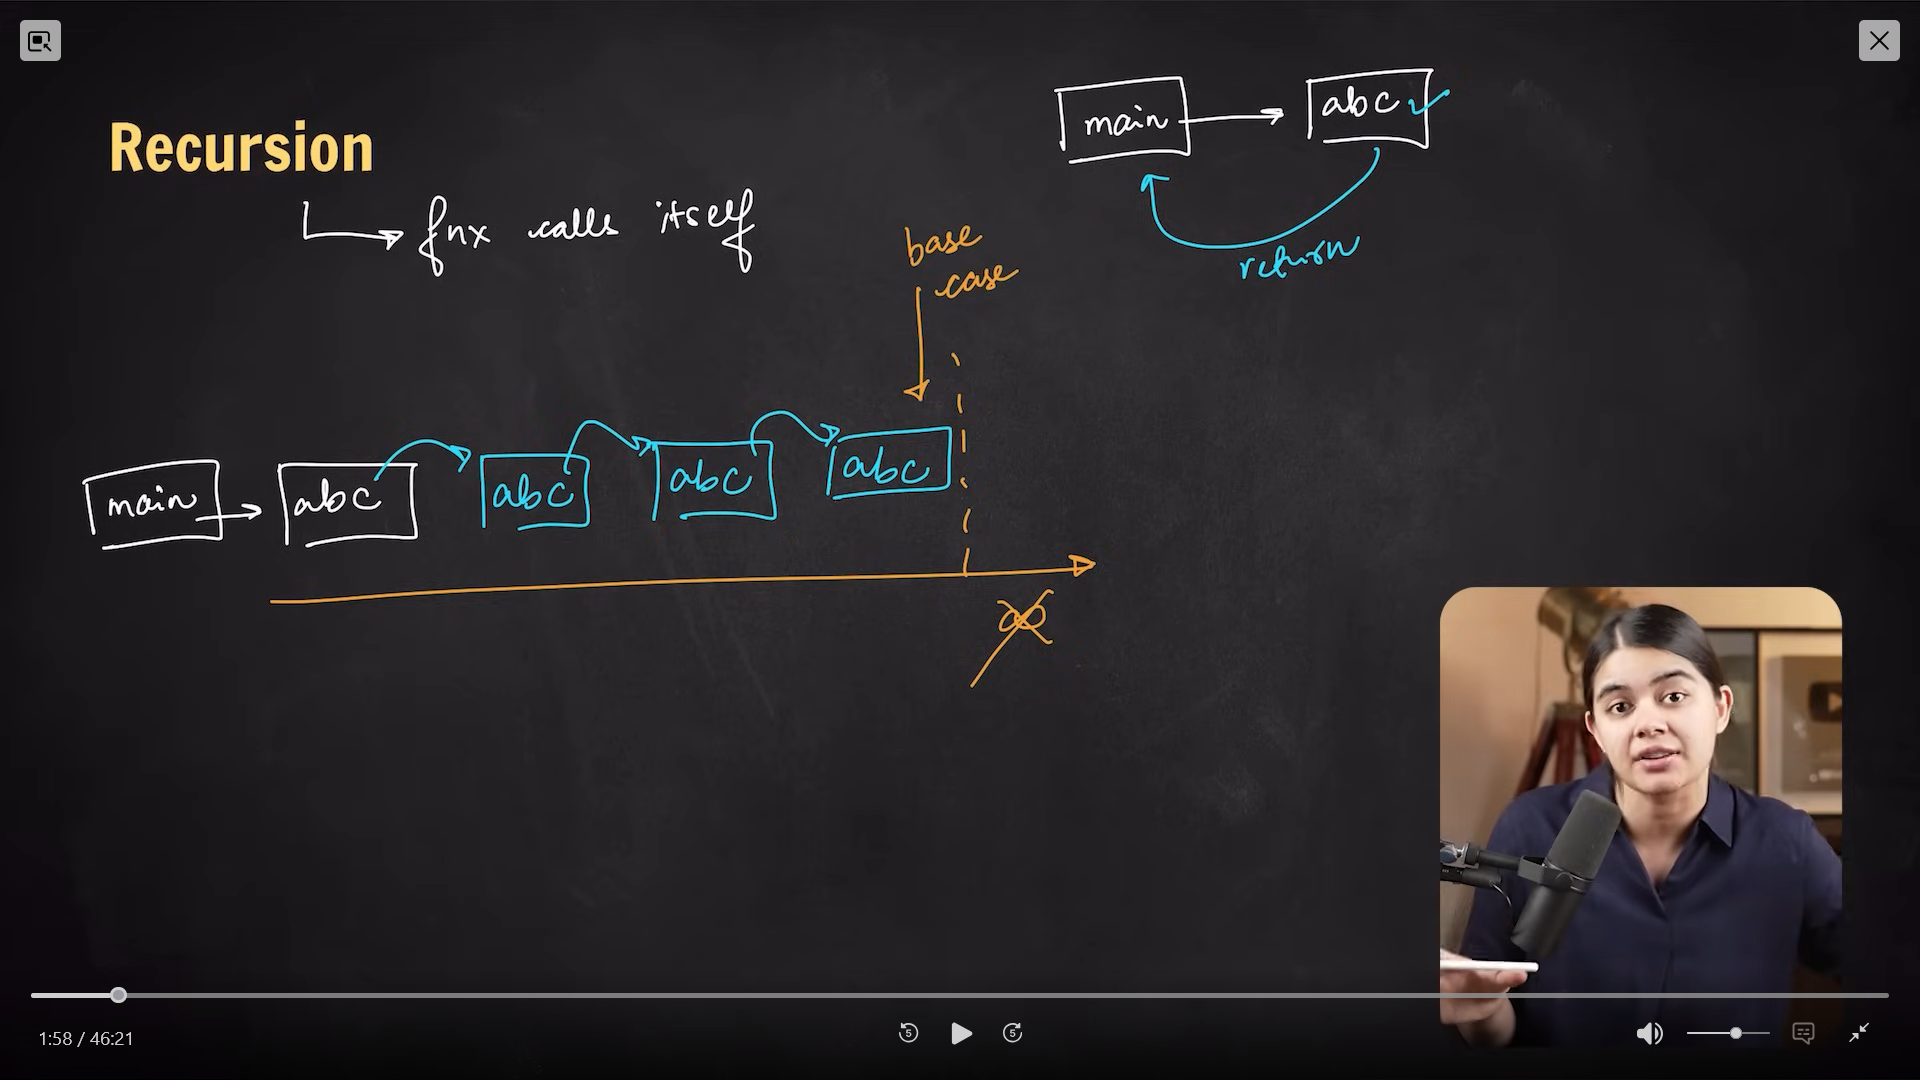 Recursion
fnx calls itself
main
abc
return
base
case
main
abc
abc
abc
abc
∞
1:58 / 46:21
5
5